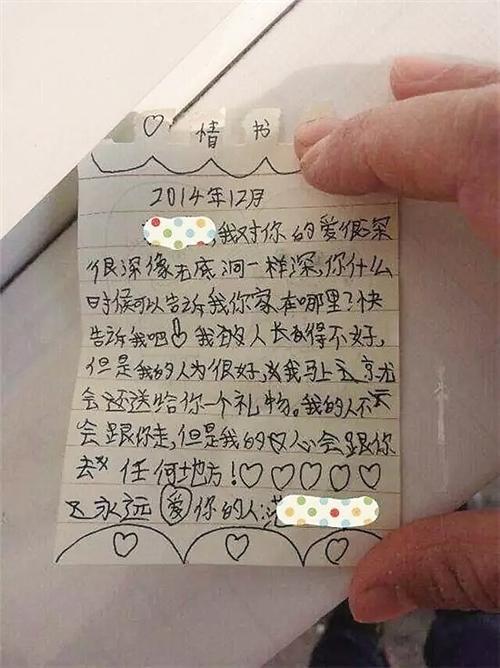 ♡ 情书
2014年12月
,我对你的爱很深
很深像无底洞一样深,你什么
时候可以告诉我你家在哪里?快
告诉我吧!我的人长的得不好,
但是我的人为很好,我马上
会还送给你一个礼物。我的人不
会跟你走,但是我的心会跟你
去 任何地方!♡♡♡♡♡
永远爱你的人:
♡ ♡ ♡